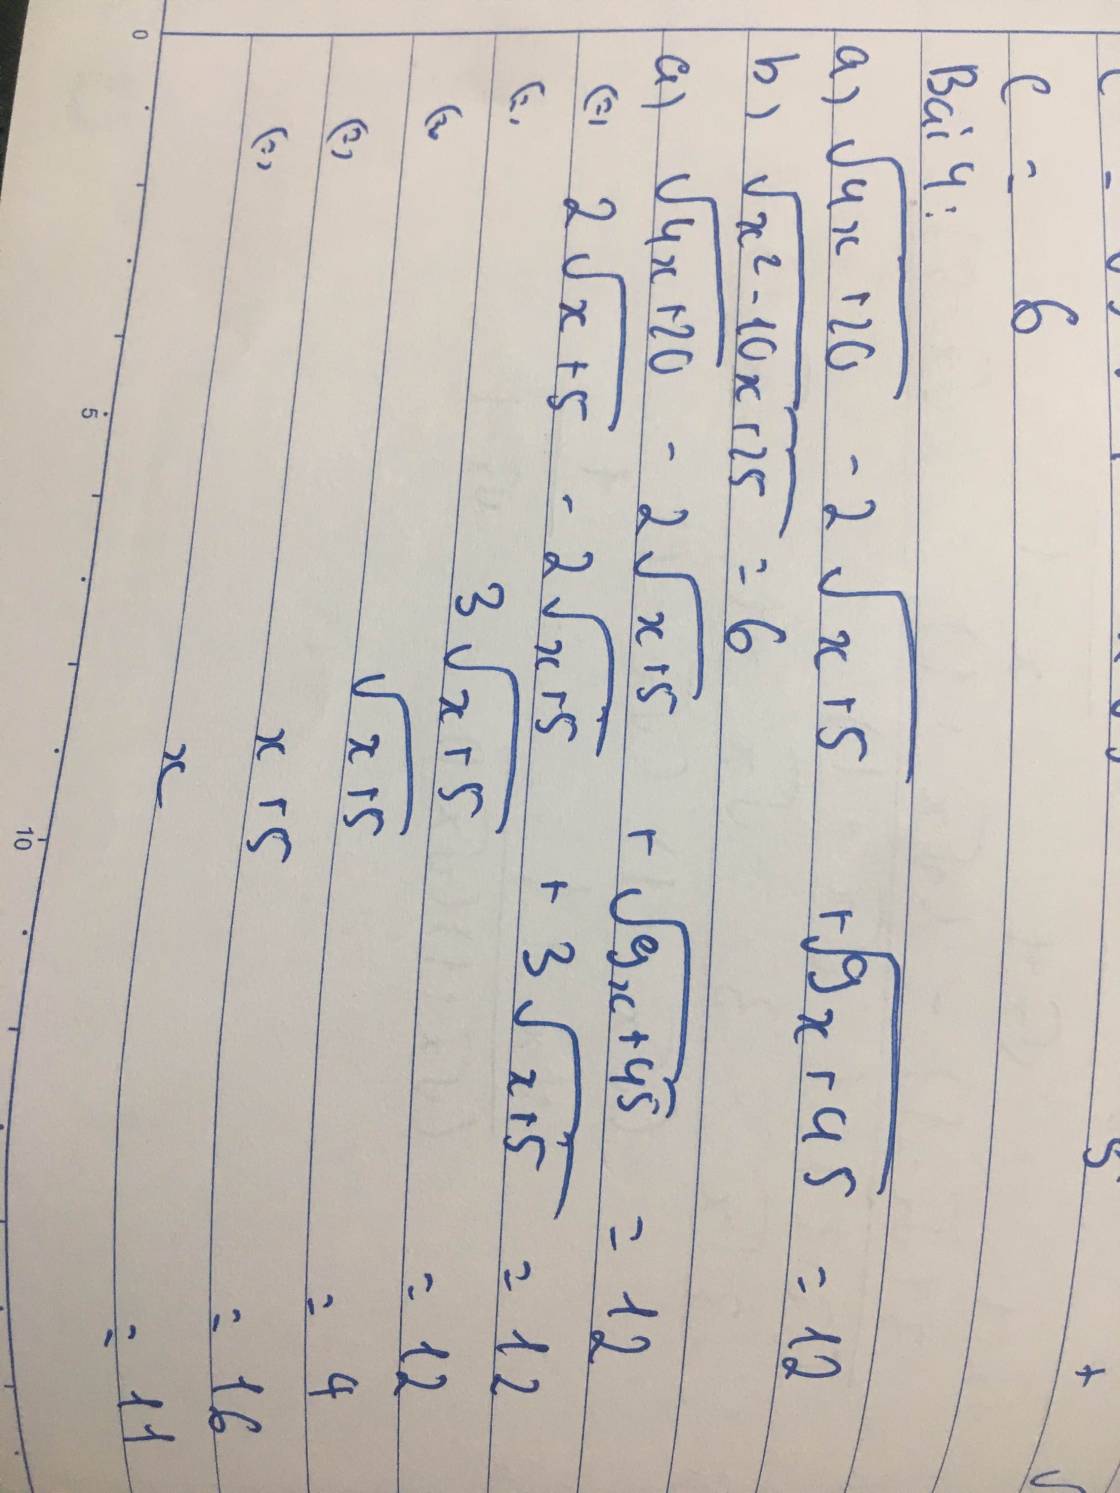 C = 6
Bài 4:
a) √4x+20 - 2√x+5 + √9x+45 = 12
b) √x²-10x+25 = 6
a) √4x+20 - 2√x+5 + √9x+45 = 12
(=) 2√x+5 - 2√x+5 + 3√x+5 = 12
(=) 3√x+5 = 12
(=) √x+5 = 4
(=) x+5 = 16
x = 11
0 5 10